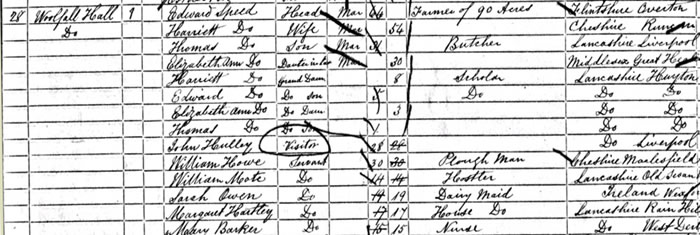 28 Woolfall Hall 1 Edward Speed Head Mar 64 Farmer of 90 Acres Flintshire Overton
Do Harriett Do Wife Mar 54 Cheshire
Thomas Do Son Mar Butcher Lancashire Liverpool
Elizabeth Ann Do Daur in law Mar 30 Middlesex Great
Harriett Do Grand Daur 8 Scholar Lancashire Huyton
Edward Do Do Son 5 Do Do Do
Elizabeth Ann Do Do Daur 3 Do Do
Thomas Do Do Son 1 Do Do
John Hulley Visitor 28 Do Liverpool
William Howe Servant 30 Plough Man Cheshire Maclesfield
William Mote Do 14 Hostler Lancashire Old Swan
Sarah Owen Do 19 Dairy Maid Ireland
Margaret Hartley Do 17 House Do Lancashire Rain
Mary Barker Do 15 Nurse Do West